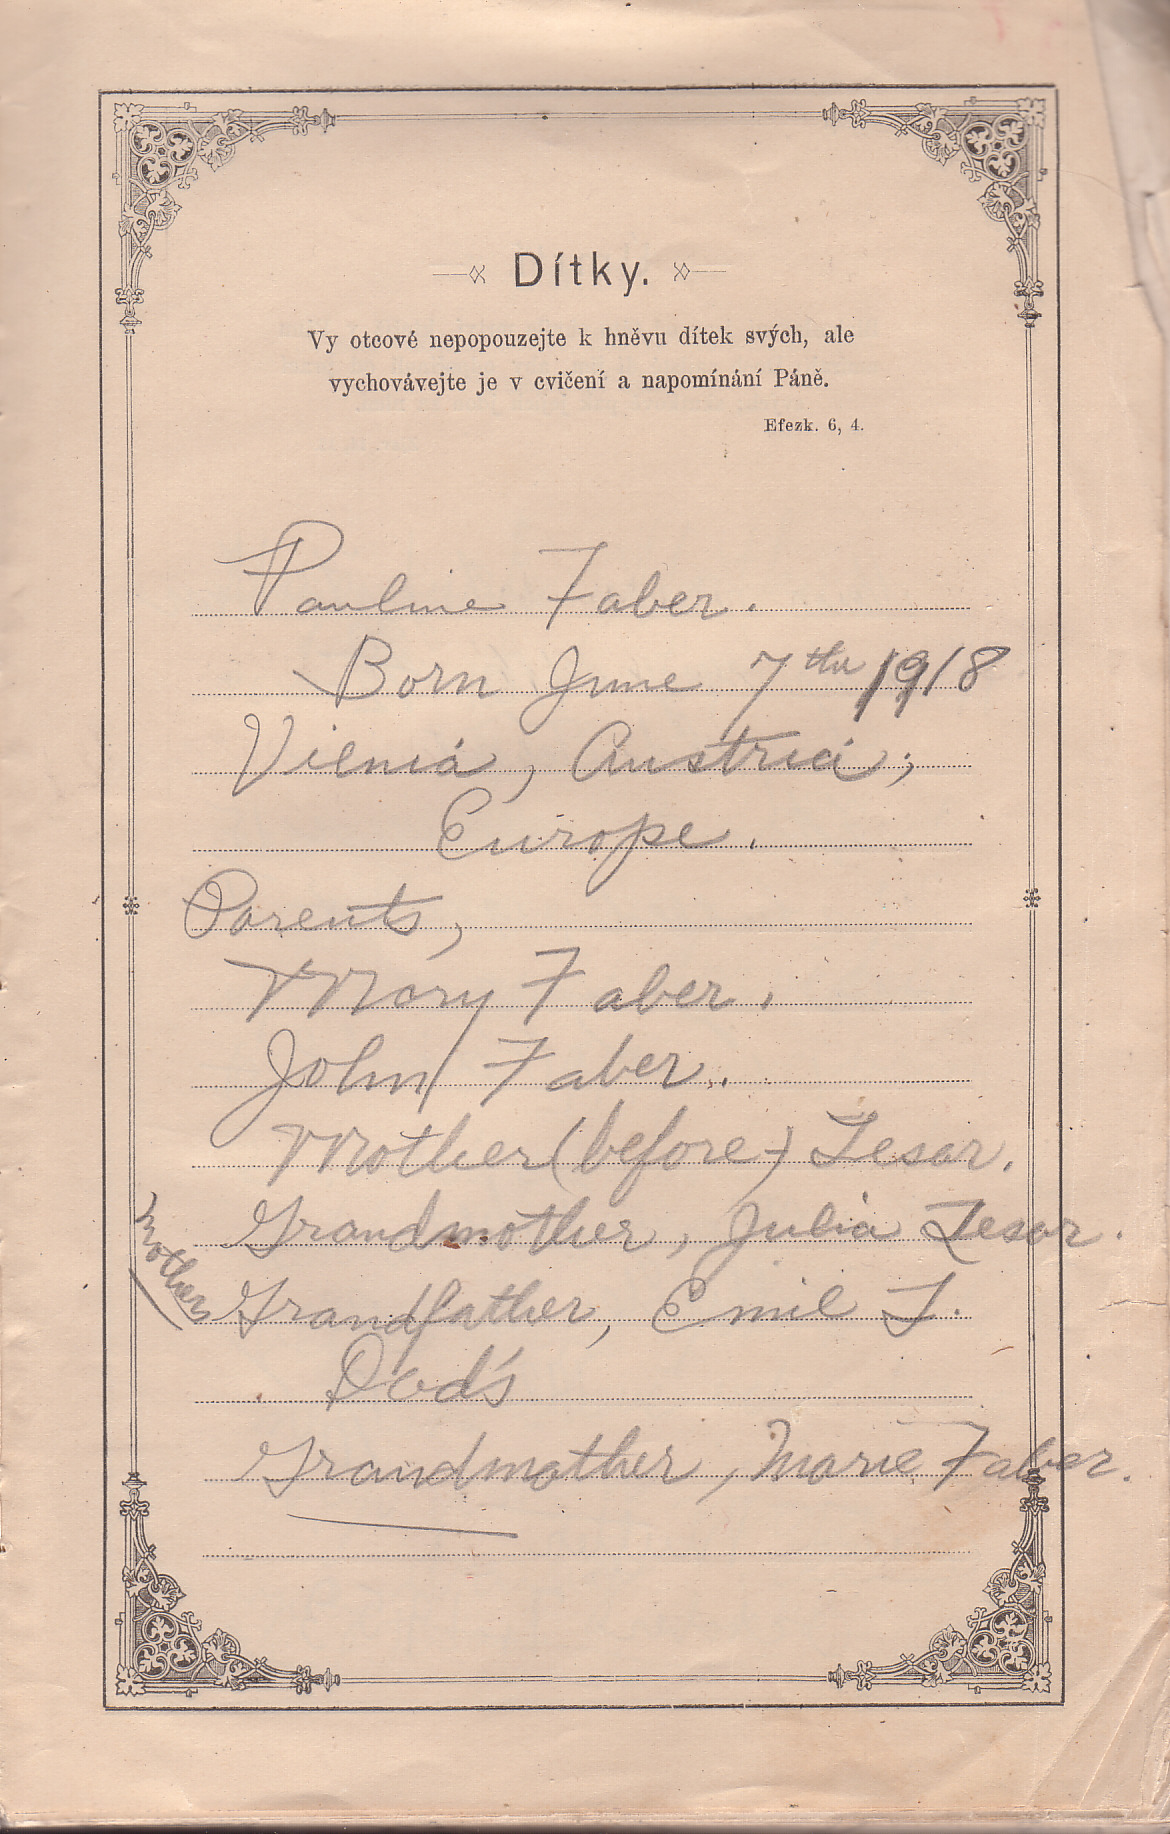 Dítky.
Vy otcové nepopouzejte k hněvu dítek svých, ale
vychovávejte je v cvičení a napomínání Páně.
Efezk. 6, 4.
Pauline Faber.
Born June 7th 1918
Vienná, Austriá,
Europe.
Parents,
Mary Faber.
John Faber.
Mother (before) Tesar.
Grandmother, Julia Tesar.
Mother
Grandfather, Emil T.
Dad's
Grandmother, Marie Faber.